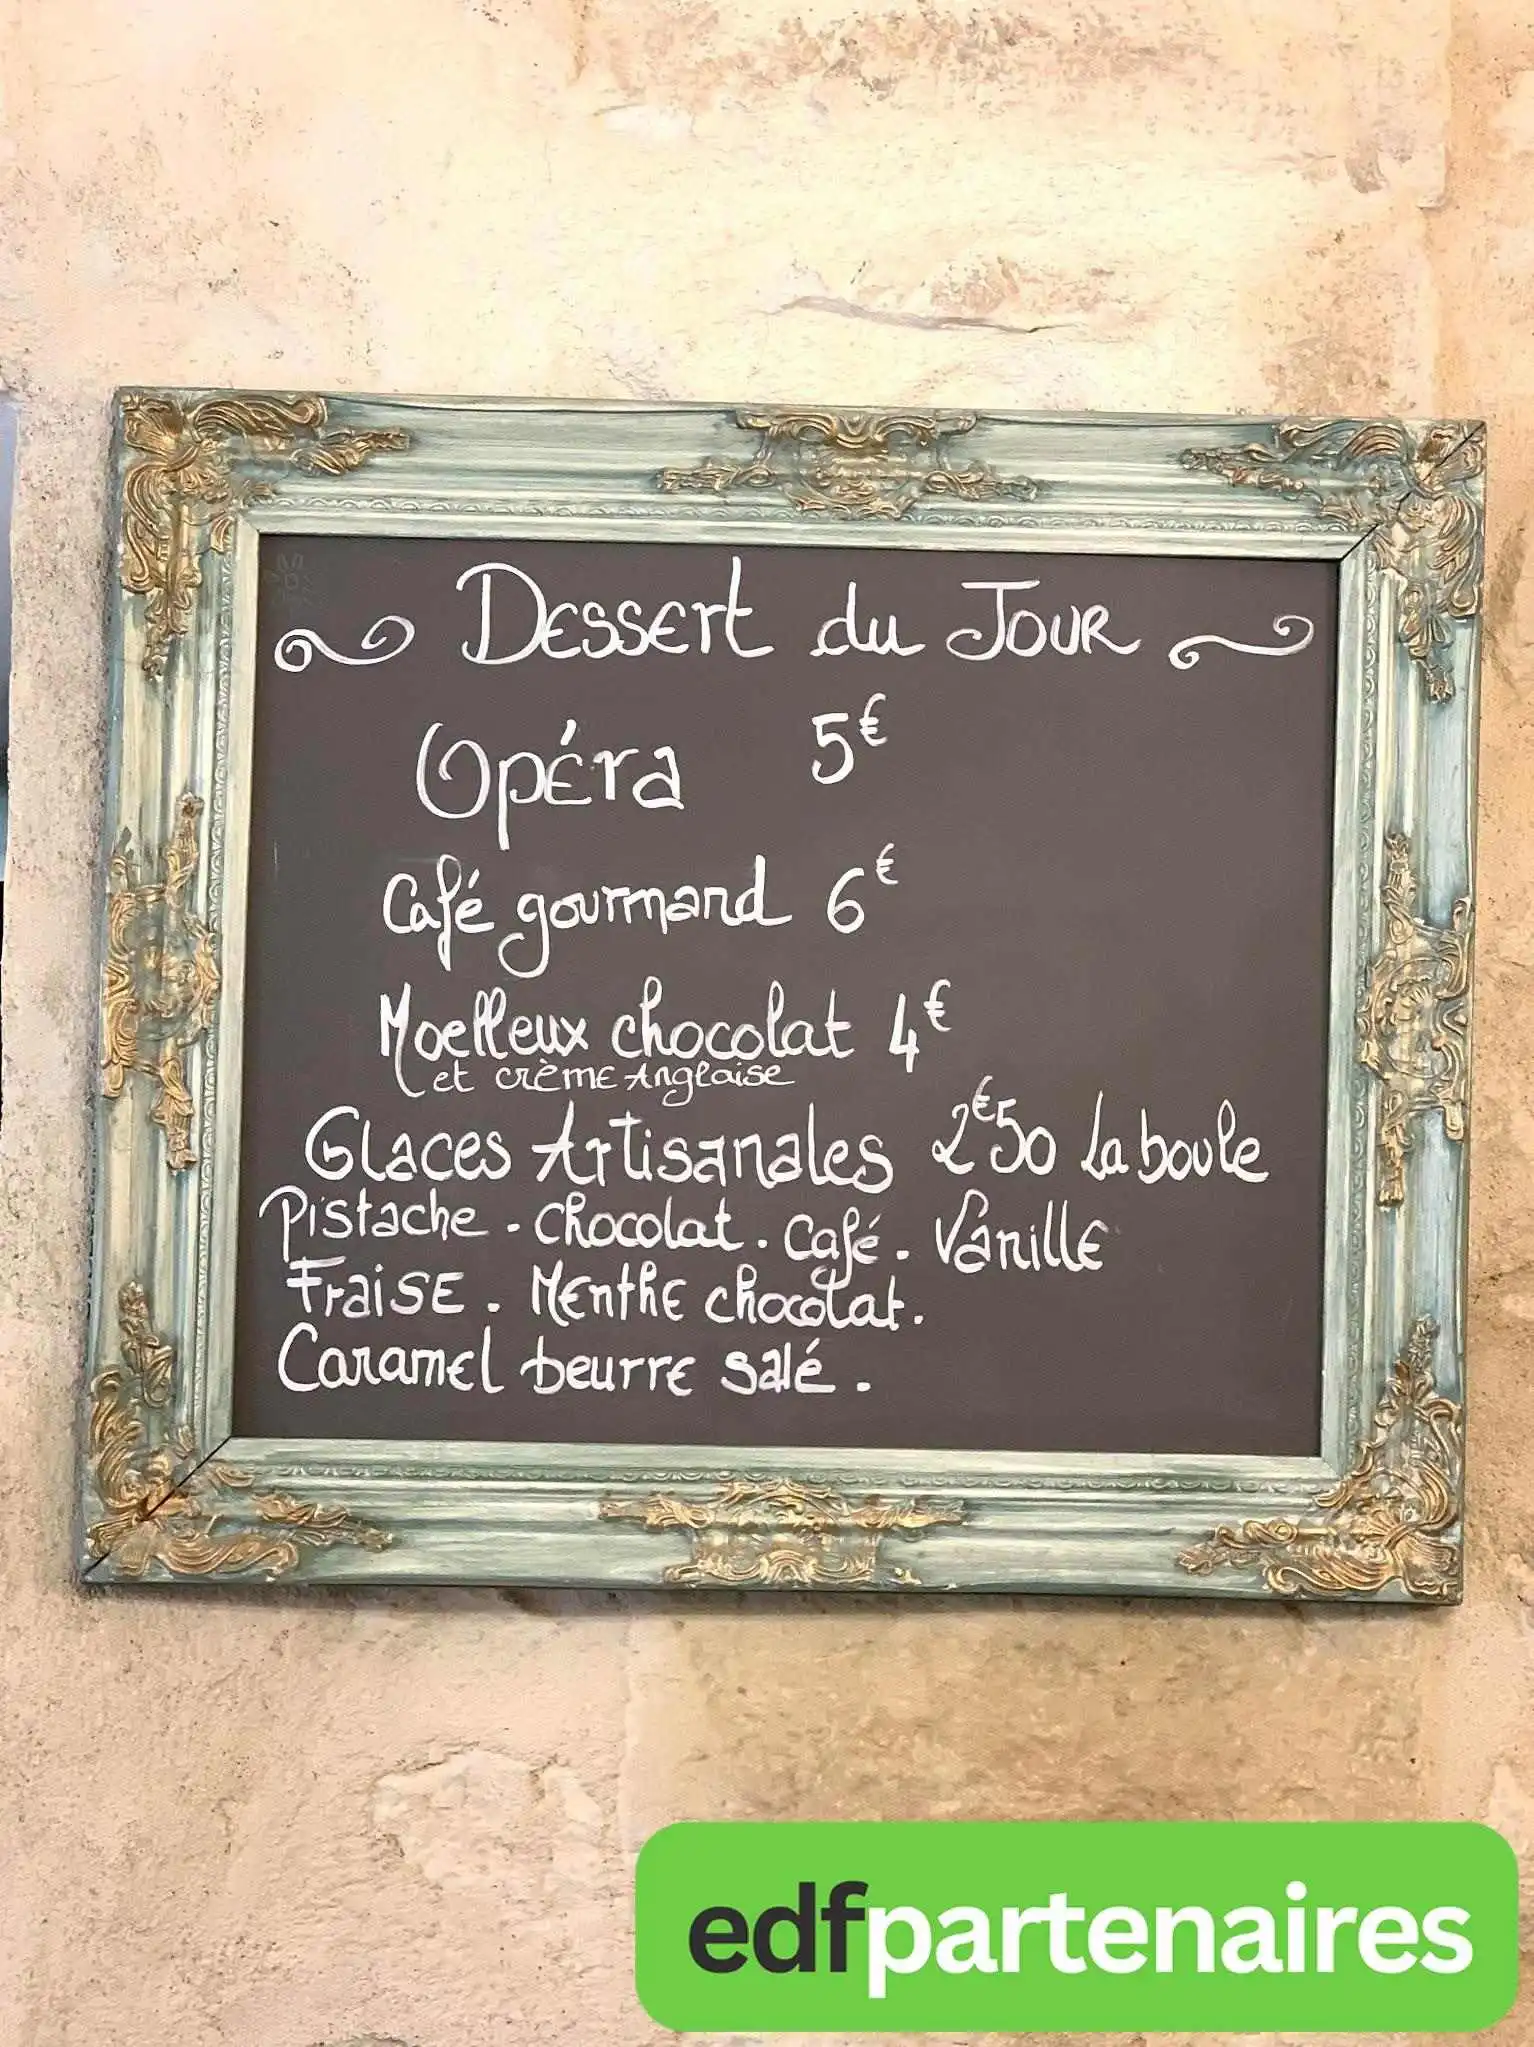 Dessert du Jour
Opéra 5€
Café gourmand 6€
Moelleux chocolat 4€
et crème Anglaise
Glaces Artisanales 2€50 La boule
Pistache . Chocolat . Café . Vanille
Fraise . Menthe chocolat .
Caramel beurre salé .
edfpartenaires